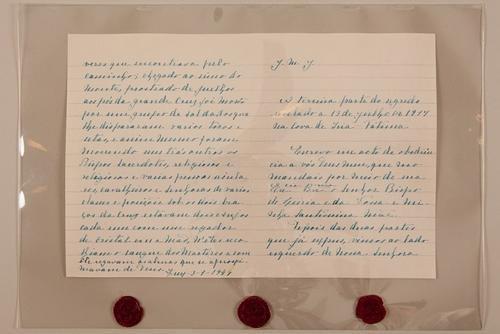 veres que encontrava pelo
caminho; chegado ao cimo do
monte, prostrado de juelhos
aos pés da grande Cruz foi morto
por um grupo de soldados que
lhe dispararam varios tiros e
setas, e assim mesmo foram
morrendo uns trás outros os
Bispos Sacerdotes, religiosos e
religiosas e varias pessoas secula
res, cavalheiros e senhoras de varias
classes e posições. Sob os dois bra
ços da Cruz estavam dois Anjos
cada um com um regador
de cristal em a mão, n'êles reco
lhiam o sangue dos Martires e com
êle regavam as almas que se aproxi
mavam de Deus. Tuy-3-1-1944
J. M. J.
A terceira parte do segredo
revelado a 13 de Julho de 1917
na Cova da Iria-Fátima.
Escrevo em acto de obediên
cia a Vós Deus meu, que mo
mandais por meio de sua
Ex.cia Rev.ma o Senhor Bispo
de Leiria e da Vossa e mi
nha Santíssima Mãe.
Depois das duas partes
que já expus, vimos ao lado
esquerdo de Nossa Senhora